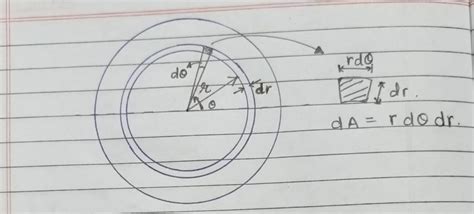 dθ
r
θ
dr
rdθ
dr.
dA = r dθ dr.